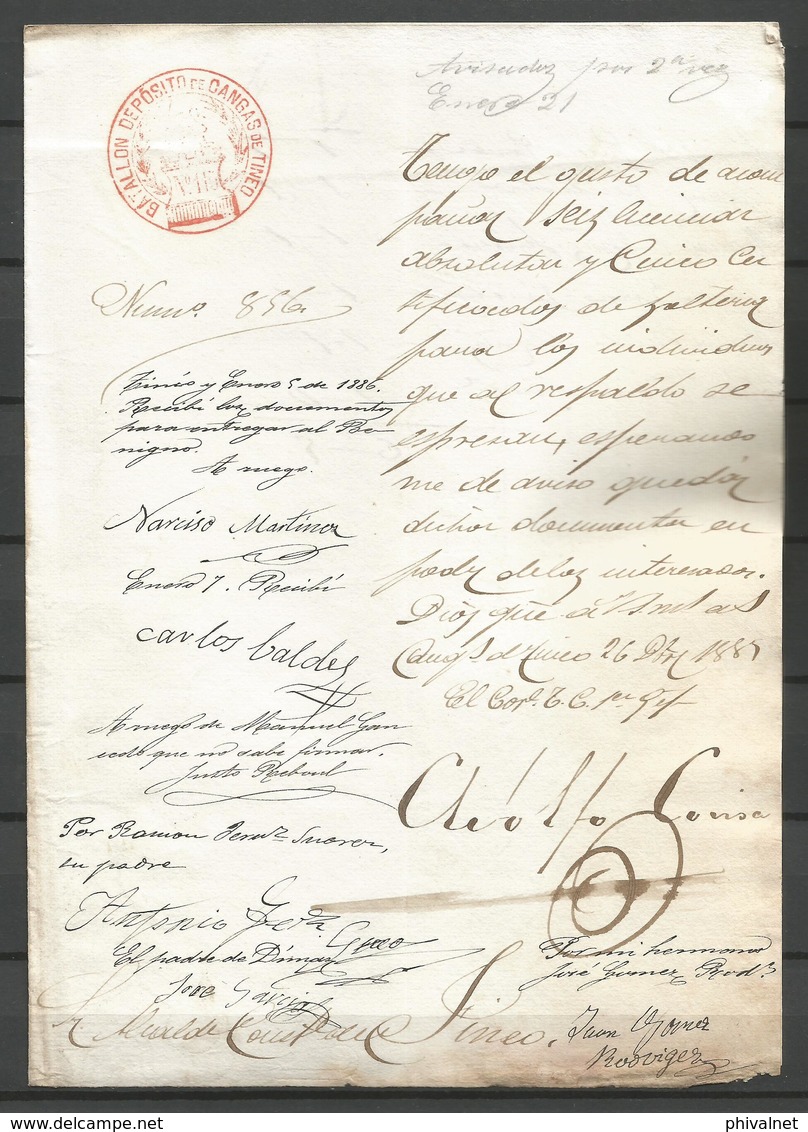 BATALLON DEPÓSITO DE CANGAS DE TINEO
Avisados por 2ª vez
Enero 21
Tengo el gusto de acom
pañar seis licencias
absolutas y Cinco Cer
tificados de solteria
para los individuos
que al respaldo se
espresan, esperando
me de aviso quedar
dichos documentos en
poder de los interesados.
Dios que á
Cangs de Tineo 26 Dbre 1885
El Corl. T. C. 1er Gefe
Adolfo
Numo. 856.
Tinéo y Enero 5 de 1886.
Recibí los documentos
para entregar al Be
nigno.
A ruego.
Narciso Martinez
Enero 7. Recibí
Carlos Valdes
A ruego de Manuel Gan
cedo que no sabe firmar.
Justo Reboul
Por Ramon Fernz Suarez,
su padre
Antonio Ferz
El padre de Dimas
José Garcia
Por mi hermano
José Gomez Rodz
Juan Gomez
Rodriguez
Sr Alcalde Constl de Tineo.
phivalnet